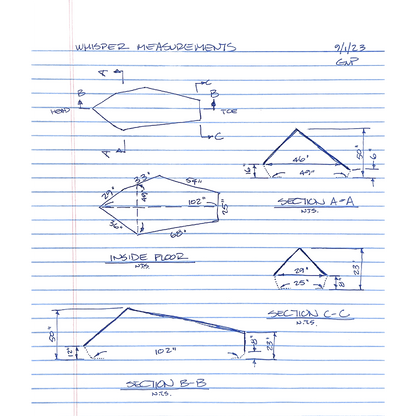 WHISPER MEASUREMENTS
9/1/23
GNP
A
C
B
B
HEAD
TOE
C
A
33"
54"
29"
49"
102"
25"
36"
68"
INSIDE FLOOR
N.T.S.
50"
6"
46"
49"
SECTION A-A
N.T.S.
23"
29"
25"
8"
SECTION C-C
N.T.S.
50"
12"
102"
8"
23"
SECTION B-B
N.T.S.